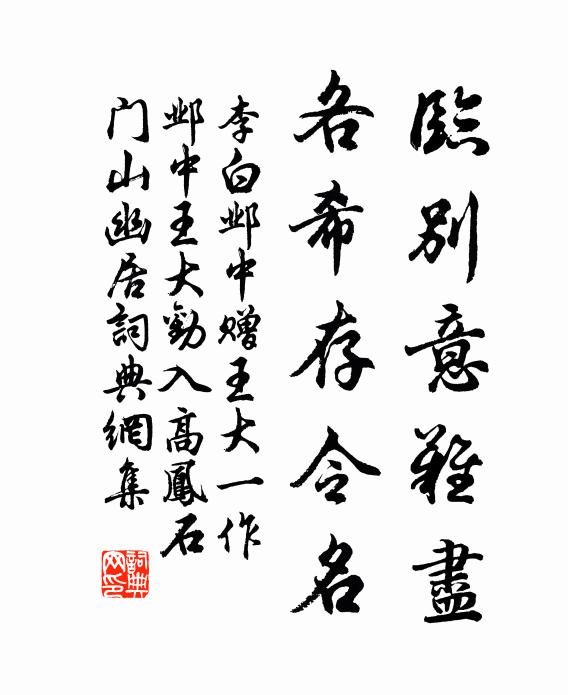 臨別意難盡
各希存令名
李白邺中赠王大一作
邺中王大勸入高鳳石
门山幽居詞典網集
詞典网印